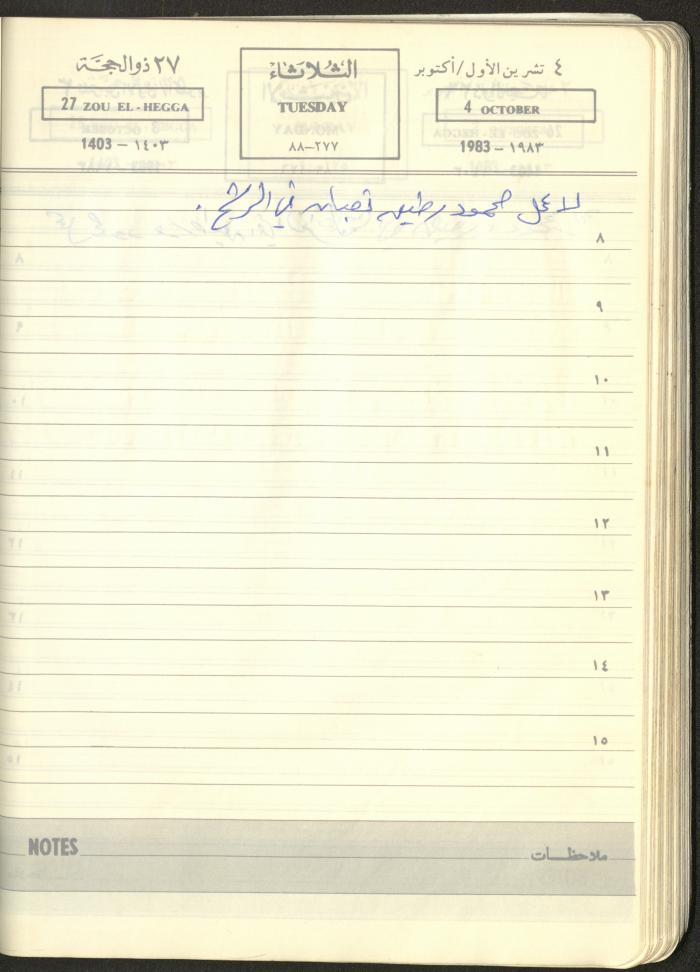 ٢٧ ذوالحجَّة
الثلاثاء
٤ تشرين الأول/أكتوبر
27 ZOU EL-HEGGA
TUESDAY
4 OCTOBER
1403 – ١٤٠٣
٨٨–٢٧٧
1983 – ١٩٨٣
لا عمل محمود تعبان في الرشح .
٨
٩
١٠
١١
١٢
١٣
١٤
١٥
NOTES
ملاحظات